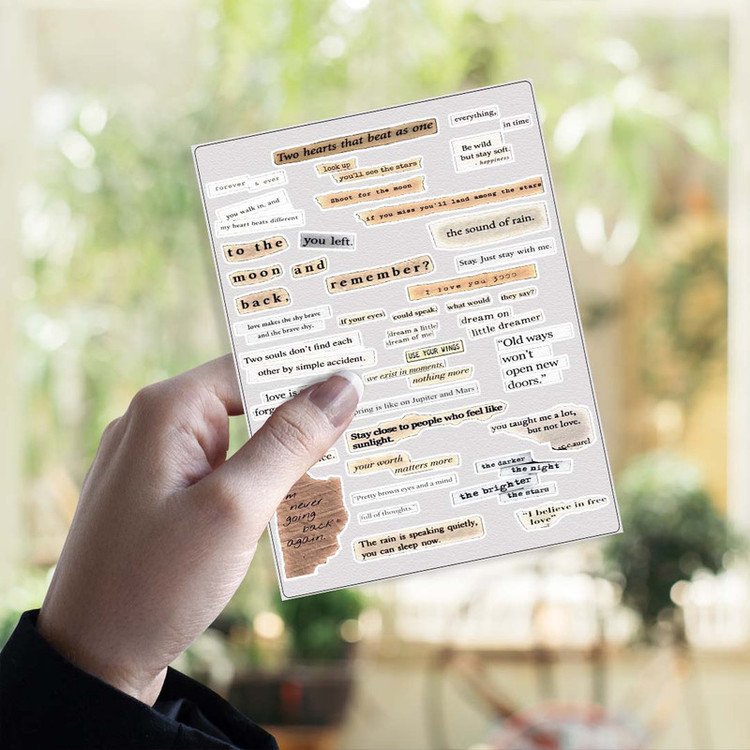 Two hearts that beat as one
everything,
in time
look up
you'll see the stars
Be wild
but stay soft.
- happiness
forever & ever
Shoot for the moon
if you miss you'll land among the stars
you walk in, and
my heart beats different
the sound of rain.
to the
you left.
moon and
back.
remember?
Stay. Just stay with me.
i love you 3000
love makes the shy brave
and the brave shy.
If your eyes
could speak,
what would
they say?
dream a little
dream of me
dream on
little dreamer
Two souls don't find each
other by simple accident.
USE YOUR WINGS
we exist in moments,
nothing more
"Old ways
won't
open new
doors."
love is
forg
pring is like on Jupiter and Mars
Stay close to people who feel like
sunlight.
you taught me a lot,
but not love.
ce.
your worth
matters more
the darker
the night
the brighter
the stars
"Pretty brown eyes and a mind
full of thoughts."
never
going
back
again.
The rain is speaking quietly,
you can sleep now.
"I believe in free
love"